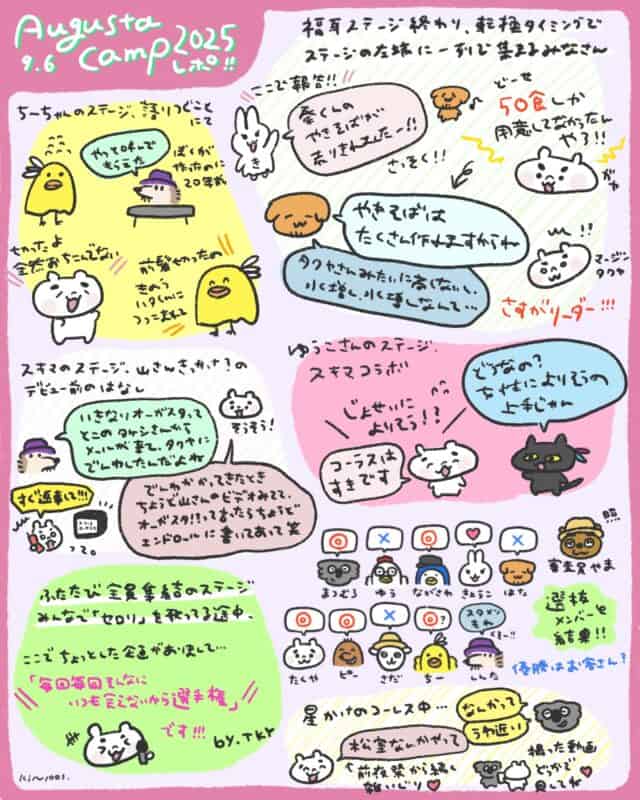 Augusta
Camp 2025
9.6 レポ!!
福耳ステージ終わり、転換タイミングで
ステージの左端に一列で集まるみなさん
ここで報告!!
秦くんの
やきそばが
おりきれましたー!!
どーせ
50食しか
用意してなかったん
やろ!!
ガヤ
さっそく!!
やきそばは
たくさん作れますからね
タクヤさんみたいに高くないし、
水増し、水増しなんて…
!!
マージン
タクヤ
さすがリーダー!!!
ちーちゃんのステージ、語りつどこと
にて
やって呼んで
もらえた
ぼくが
20年前
全然おちこんでない
前髪やったの
きのう
スキマのステージ、山さんきっかけ?の
デビュー前のはなし
いきなりオーガスタって
とこのタケシさんから
メールが来て、タクヤに
でんわしたんだよね
そうそう!
すぐ返事して!!!
って。
でんわかかってきたとき
ちょうど山さんのビデオみてて、
オーガスタ!?っておもったらちょうど
エンドロールに書いてあって笑
ゆうこさんのステージ、
スキマコラボ
じょせいに
よりそう!?
コーラスは
すきです
どうなの?
女性によりそうの
上手じゃん
まつむろ
ゆう
ながさわ
きょうこ
はた
審査員やま
たくや
ピー
さだ
ちー
しんた
スタメン
もれ
選抜
メンバーを
結果!!
優勝はお客さん?
ふたたび全員集合のステージ
みんなで「セロリ」を歌ってる途中、
ここでちょっとした企画がありまして…
「毎回毎回そんなに
いつも食えないから選手権」
です!!!
by.TKY
星かけのコーラス中…
なんかって
うわ近い
松室なんかやって
前夜祭から続く
雑いじり
撮った動画
どっかで
見してね